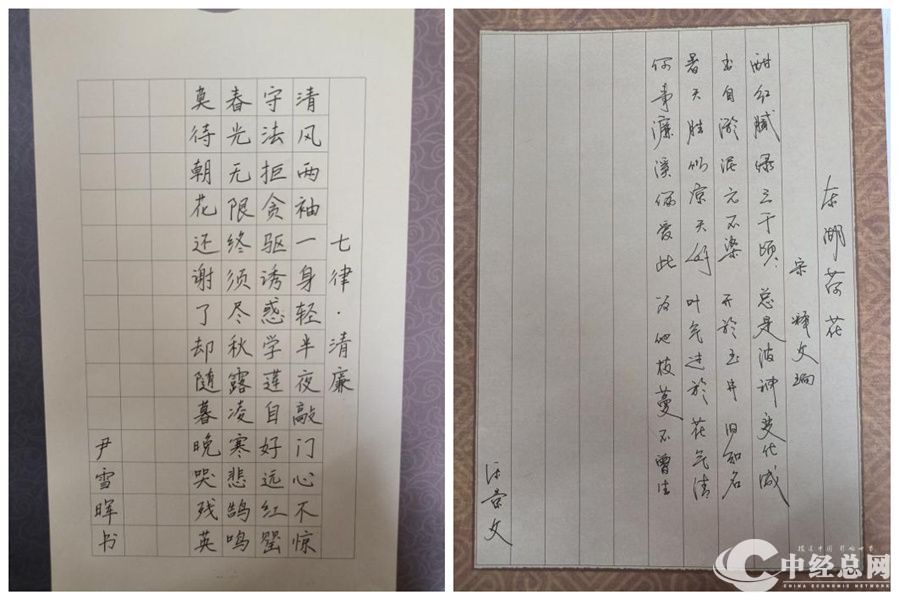 七律·清廉
清风两袖一身轻半夜敲门心不惊
守法拒贪驱诱惑学莲自好远红罂
春光无限终须尽秋露凌寒悲鹄鸣
莫待朝花还谢了却随暮晚哭残英
尹雪晖书
东湖荷花
宋 释文珦
酣红腻绿三千顷，总是波神变化成
出自淤泥元不染 开於玉井旧知名
暑天胜似凉天好 叶气过於花气清
何事濂溪偏爱此 为他枝蔓不曾生
中经总网
CHINA ECONOMIC NETWORK